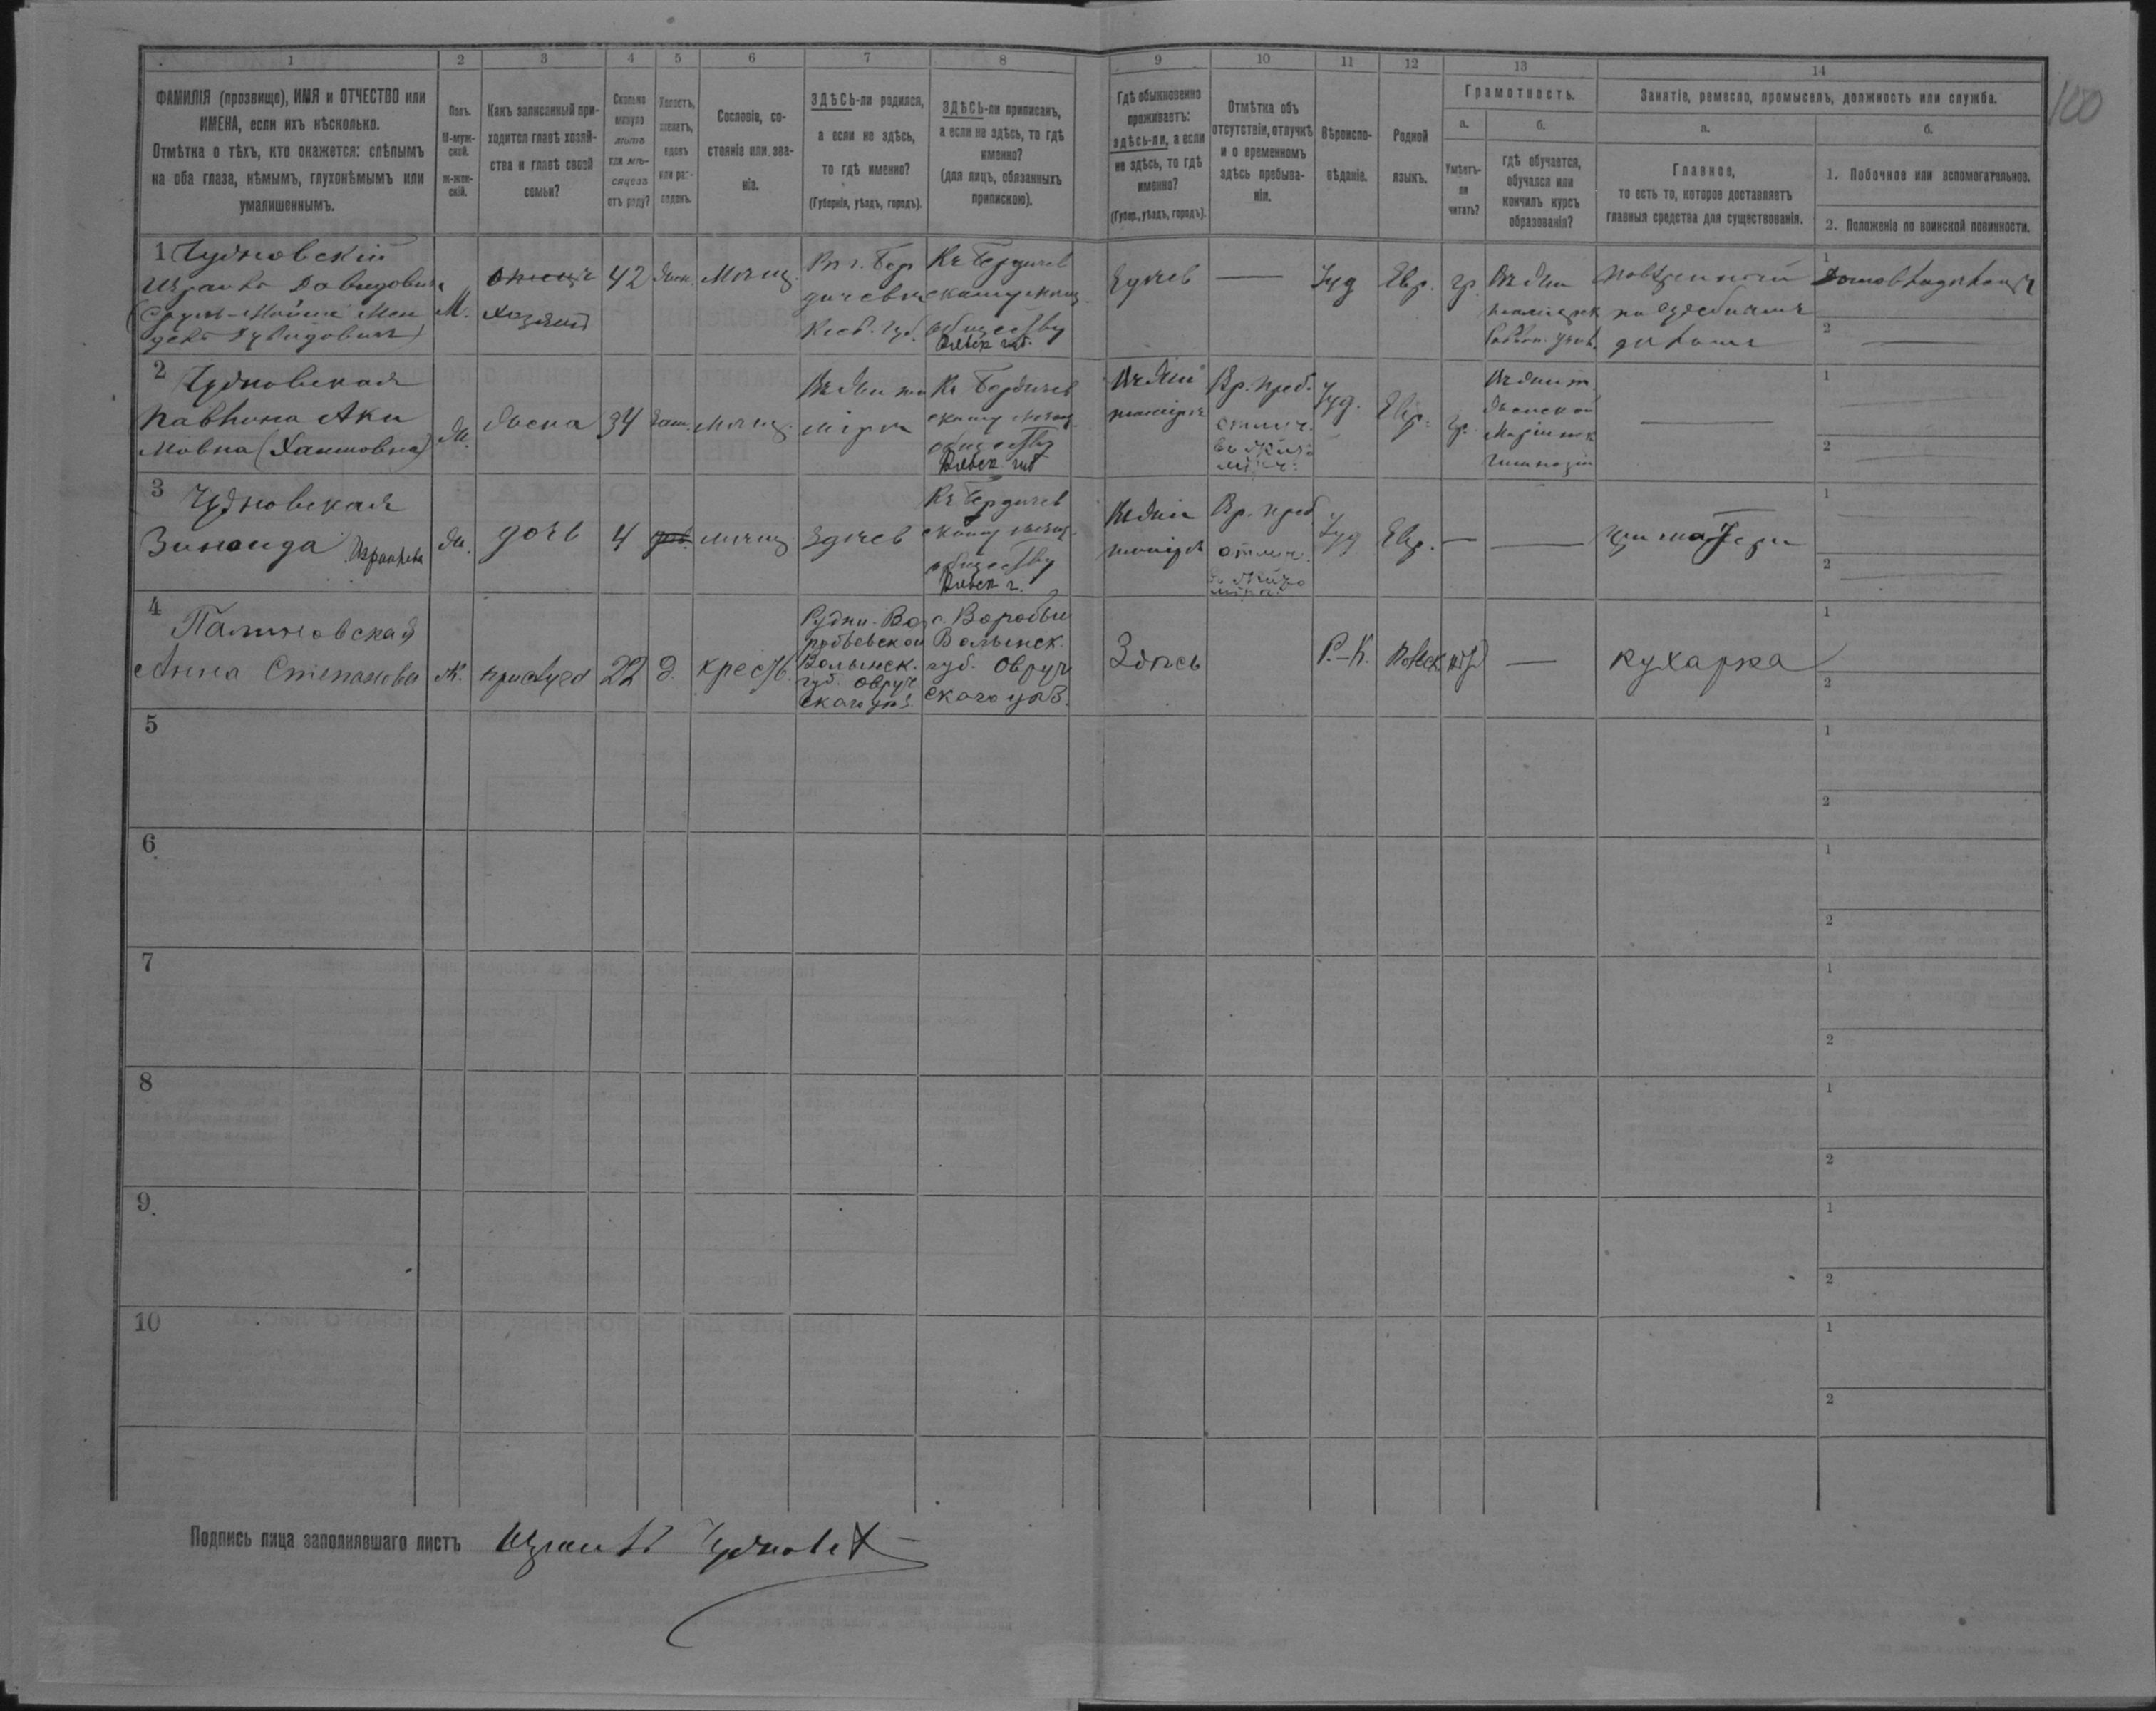 100
1 2 3 4 5 6 7 8 9 10 11 12 13 14
ФАМИЛІЯ (прозвище), ИМЯ и ОТЧЕСТВО или
ИМЕНА, если ихъ нѣсколько.
Отмѣтка о тѣхъ, кто окажется: слѣпымъ
на оба глаза, нѣмымъ, глухонѣмымъ или
умалишеннымъ.
Полъ.
М-муж-
ской.
ж-жен-
скій.
Какъ записанный при-
ходится главѣ хозяй-
ства и главѣ своей
семьи?
Сколько
минуло
лѣтъ
или мѣ-
сяцевъ
отъ роду?
Холостъ,
женатъ,
вдовъ
или раз-
веденъ.
Сословіе, со-
стояніе или зва-
ніе.
ЗДѢСЬ-ли родился,
а если не здѣсь,
то гдѣ именно?
(Губернія, уѣздъ, городъ).
ЗДѢСЬ-ли приписанъ,
а если не здѣсь, то гдѣ
именно?
(для лицъ, обязанныхъ
припискою).
Гдѣ обыкновенно
проживаетъ:
здѣсь-ли, а если
не здѣсь, то гдѣ
именно?
(Губер., уѣздъ, городъ).
Отмѣтка объ
отсутствіи, отлучкѣ
и о временномъ
здѣсь пребыва-
ніи.
Вѣроиспо-
вѣданіе.
Родной
языкъ.
Грамотность.
а.
Умѣетъ-
ли
читать?
б.
гдѣ обучается,
обучался или
кончилъ курсъ
образованія?
Занятіе, ремесло, промыселъ, должность или служба.
а.
Главное,
то есть то, которое доставляетъ
главныя средства для существованія.
б.
1. Побочное или вспомогательное.
2. Положеніе по воинской повинности.
1 Чудновскій
Израиль Давидовичъ
М.
хозяинъ
42
Жен.
Мѣщ.
Въ г. Бер
дичевѣ
Кіев. Губ.
Къ Бердичев
скому мѣщ.
обществу
Кіевск. губ.
Здѣсь
Іуд
Евр.
гр.
повѣренный
по судебнымъ
дѣламъ
Домовладѣлецъ
1
2
2 Чудновская
Павлина Аки
мовна (Хаимовна)
Ж.
Жена
34
Зам.
мѣщ.
Въ Жито
мірѣ
Къ Бердичев
скому мѣщ.
обществу
Кіевск. губ
Въ Жи
томірѣ
Вр. преб.
Іуд.
Евр.
гр.
женской
Маріинск
гимназіи
1
2
3 Чудновская
Зинаида
Ж.
дочь
4
мѣщ
Здѣсь
Къ Бердичев
скому мѣщ.
обществу
Кіевск г.
Въ Жи
томірѣ
Вр. преб
Іуд
Евр.
При матери
1
2
4
Анна Степановна
Ж.
прислуга
22
д.
крест.
Волынск.
губ. Овруч
скаго уѣз.
с. Воробьи
Волынск.
губ. Овруч
скаго уѣз.
Здѣсь
Р.-К.
Польск
нѣт
кухарка
1
2
5
1
2
6
1
2
7
1
2
8
1
2
9
1
2
10
1
2
Подпись лица заполнявшаго листъ Израиль Чудновск